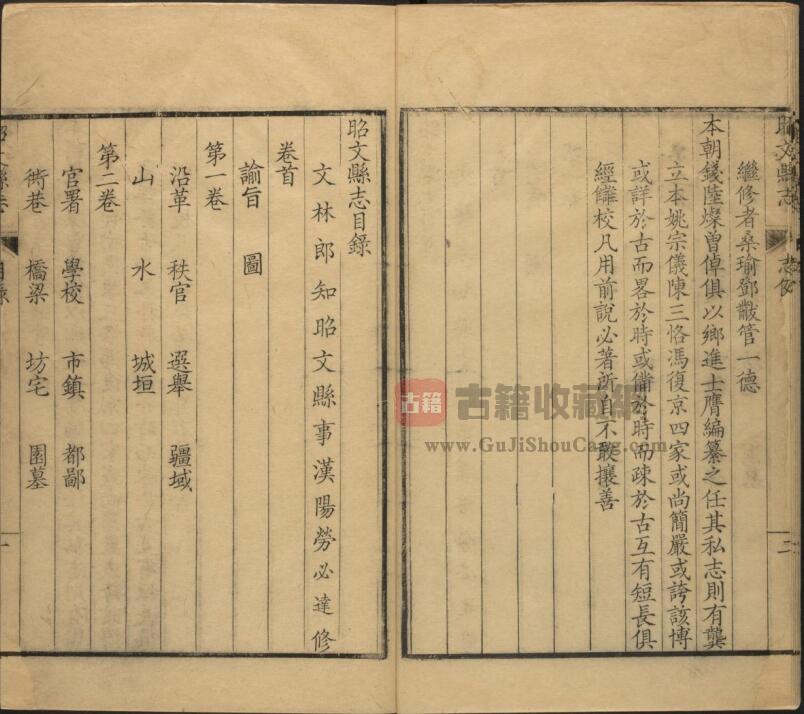 昭文縣志
志例
二
繼修者桑瑜鄧韍管一德
本朝錢陸燦曽倬俱以鄉進士膺編纂之任其私志則有龔
立本姚宗儀陳三恪馮復京四家或尚簡嚴或誇該博
或詳於古而畧於時或備於時而疎於古互有短長俱
經讎校凡用前說必著所自不敢攘善
昭文縣志目錄
文林郎知昭文縣事漢陽勞必達修
卷首
諭旨 圖
第一卷
沿革 秩官 選舉 疆域
山 水 城垣
第二卷
官署 學校 市鎮 都鄙
衖巷 橋梁 坊宅 園墓
昭文縣志
目錄
一
古籍 古籍收藏網
www.GuJiShouCang.com